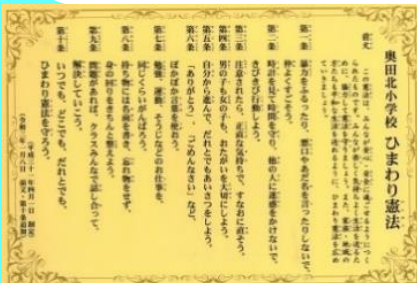 奥田北小学校 ひまわり憲法
前文
この憲法は、みんなが安心・安全に過ごせるようにつく
られたものです。みんなが楽しく気持ちよく生活を送るた
めに、協力して憲法を守りましょう。また、家族・地域の
方たちも平和な生活を送れるように、ひまわり憲法を広め
ていきましょう。
第一条 暴力をふるったり、悪口やあだ名を言ったりしないで、
仲よくすごそう。
第二条 時計を見て時間を守り、他の人に迷惑をかけないで、
きびきび行動しよう。
第三条 注意されたら、正直な気持ちで、すなおに直そう。
第四条 男の子も女の子も、おたがいを大切にしよう。
第五条 自分から進んで、だれとでもあいさつをしよう。
第六条 「ありがとう」、「ごめんなさい」など、
ぽかぽか言葉を使おう。
第七条 勉強、運動、そうじなどのお仕事を、
同じくらいがんばろう。
第八条 持ち物には名前を書き、忘れ物をせず、
身の回りをきちんと整えよう。
第九条 問題があれば、クラスみんなで話し合って、
解決していこう。
第十条 いつでも、どこでも、だれとでも、
ひまわり憲法を守ろう。
(平成三十一年四月一日 制定)
(令和二年一月八日 前文・第十条追加)